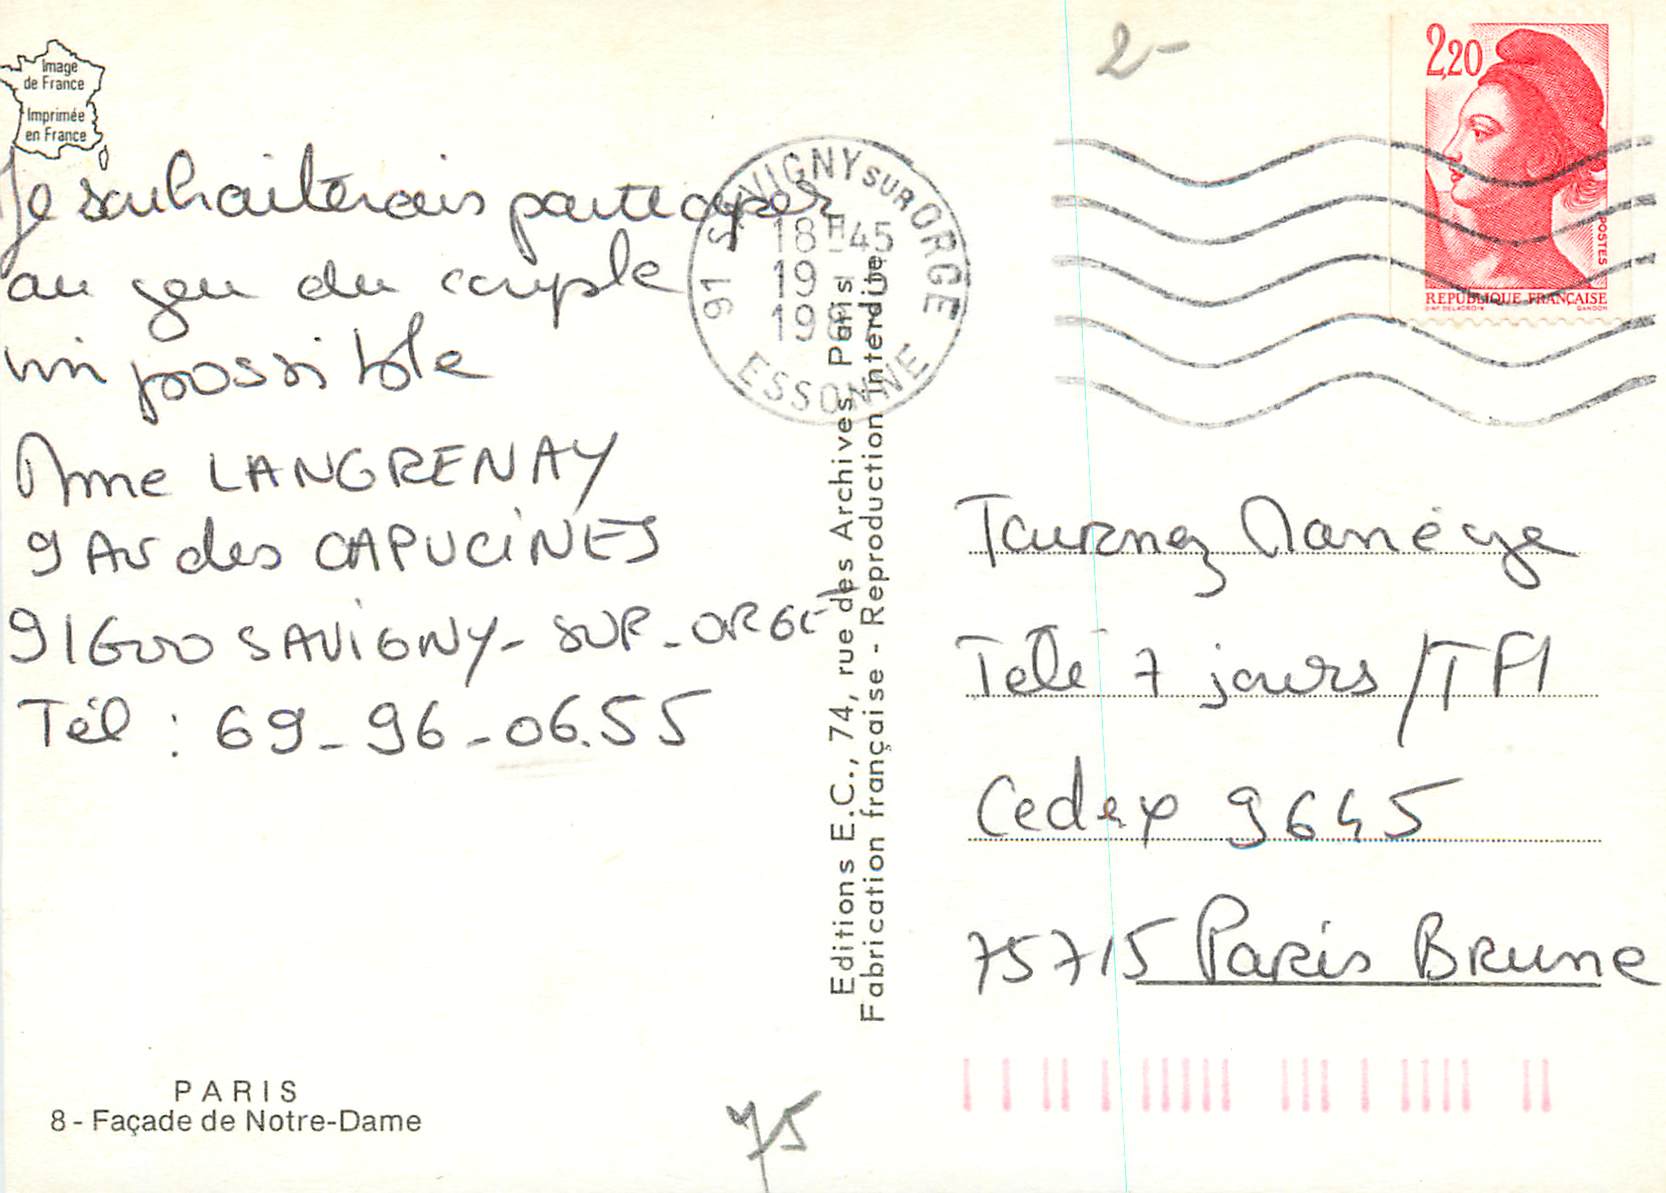 Image
de France
Imprimée
en France
Je souhaiterais participer
au jeu du couple
impossible
Mme LANGRENAY
9 Av des CAPUCINES
91600 SAVIGNY-SUR-ORGE
Tél : 69-96-06.55
PARIS
8 - Façade de Notre-Dame
75
Editions E.C., 74, rue des Archives, Paris
Fabrication française - Reproduction interdite
91 SAVIGNY SUR ORGE
18H45
19
ESSONNE
2-
2,20
POSTES
REPUBLIQUE FRANÇAISE
Tournez Manège
Télé 7 jours / TF1
Cedex 9645
75715 Paris Brune